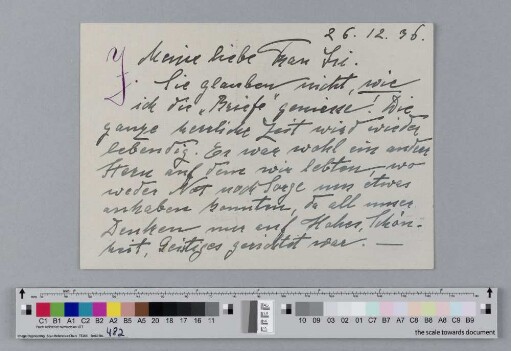 26.12.36.
Meine liebe Frau
Sie glauben nicht, wie
ich die „Briefe" geniesse! Die
ganze herrliche Zeit wird wieder
lebendig. Es war wohl ein andrer
Stern auf dem wir lebten, wo
weder Not noch Sorge uns etwas
anhaben konnten, da all unser
Denken nur auf Hohes, Schön-
heit, Geistiges gerichtet war. —
C1 B1 A1 C2 B2 A2 B5 A5 20 18 17 16 11
10 09 03 02 01 C7 B7 A7 C8 B8 A8 C9 B9
the scale towards document
482